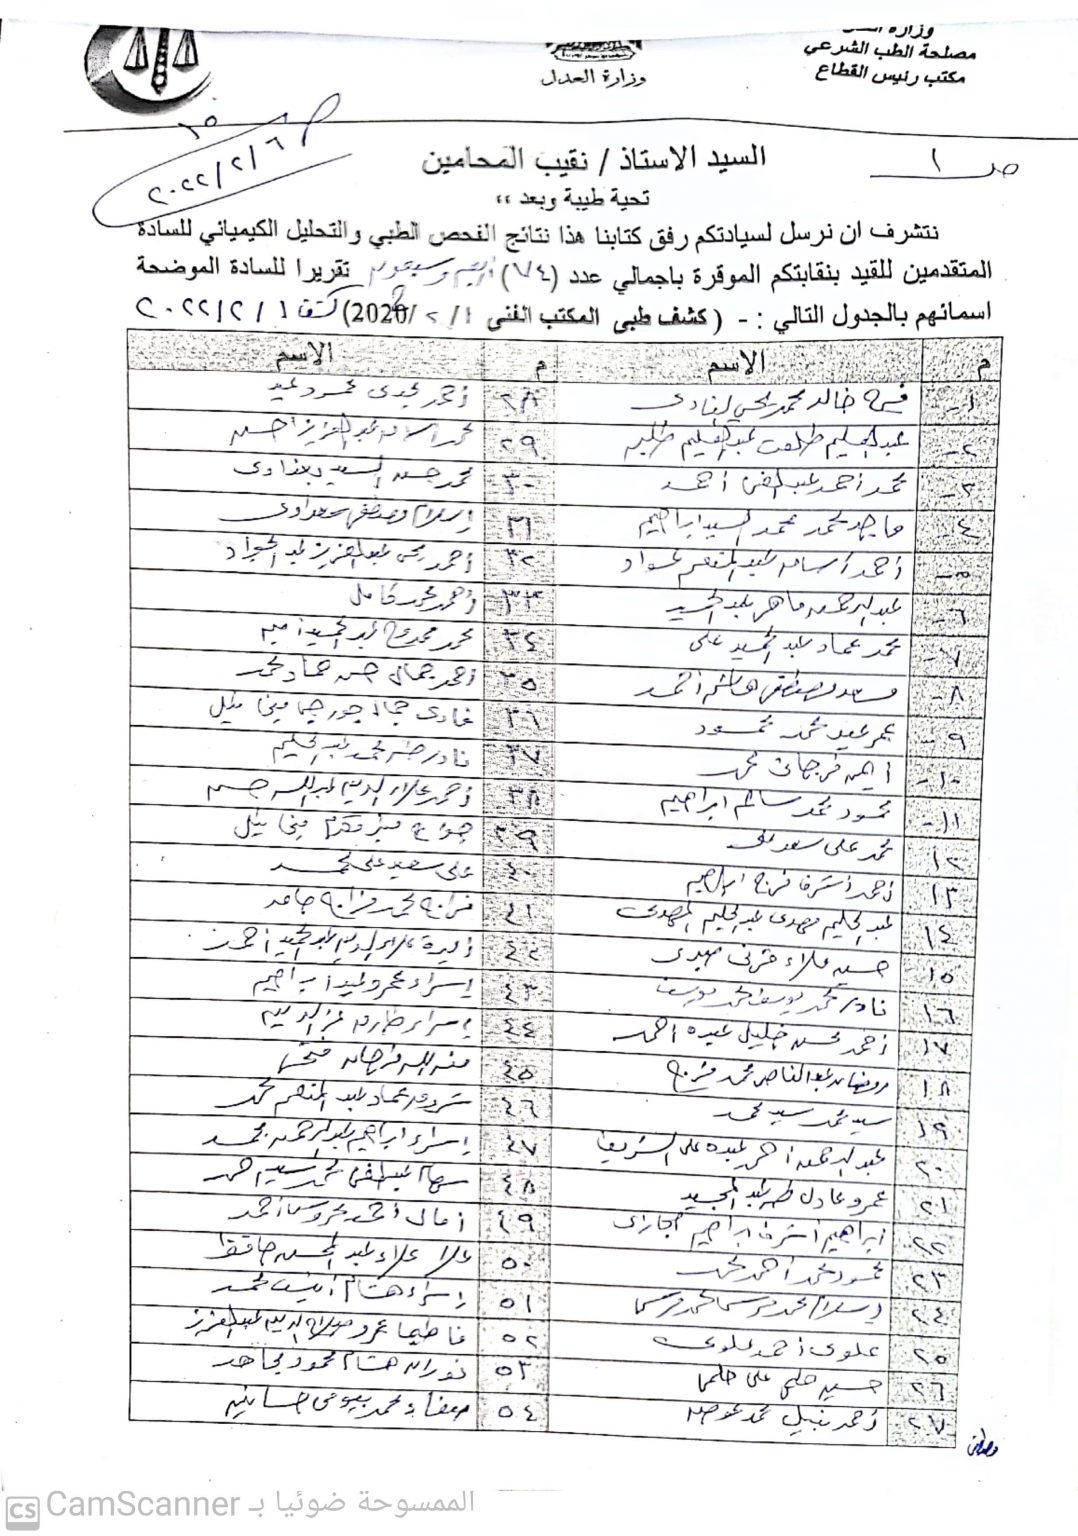 وزارة العدل
مصلحة الطب الشرعي
مكتب رئيس القطاع
وزارة العدل
٢٠٢٢/٢/٦
ص ١
السيد الاستاذ / نقيب المحامين
تحية طيبة وبعد ،،
نتشرف ان نرسل لسيادتكم رفق كتابنا هذا نتائج الفحص الطبي والتحليل الكيميائي للسادة
المتقدمين للقيد بنقابتكم الموقرة باجمالي عدد (٧٤) تقريرا للسادة الموضحة
اسمائهم بالجدول التالي : - ( كشف طبى المكتب الفنى ١/ ٢ /2020) كشف ٢٠٢٢/٢/١
م الاسم م الاسم
١- خالد محمد ٢٨ احمد مجدى محمود عيد
٢- عبدالحليم طلعت عبدالحليم طلبه ٢٩ محمد اسامه عبدالعزيز احسن
٣- محمد احمد عبدالغنى احمد ٣٠ محمد حسن السيد بغدادى
٤- ماجد محمد محمد السيد ابراهيم ٣١ اسلام مصطفى سعداوى
٥- احمد اسامه عبدالمنعم عواد ٣٢ أحمد يحى عبدالعزيز عبدالجواد
٦- عبدالرحمن ماهر عبدالحميد ٣٣ أحمد محمد كامل
٧- محمد عماد عبدالحميد على ٣٤ محمد ممدوح عبدالحميد
٨- مصطفى هاشم احمد ٣٥ احمد جمال حسن حماد محمد
٩- عمر عيد محمد محمود ٣٦ فادى جورجى ميخائيل
١٠- ايمن فرحات محمد ٣٧ نادر محمد عبدالحليم
١١- محمود محمد سالم ابراهيم ٣٨ أحمد علاء الدين عبدالله حسن
١٢ محمد على سعد على ٣٩ مكرم ميخائيل
١٣ أحمد اشرف فرج ابراهيم ٤٠ على سعيد على محمد
١٤ عبدالحليم مهدى عبدالحليم المهدى ٤١ محمد حامد
١٥ حسين علاء قرنى مهدى ٤٢ اميرة علاء الدين عبدالحميد احمد
١٦ نادر محمد يوسف محمد يوسف ٤٣ اسراء عمرو عيد ابراهيم
١٧ أحمد محسن خليل عبده احمد ٤٤ اسراء طارق عز الدين
١٨ رمضان عبدالناصر محمد فرج ٤٥ منه الله فرحان فتحى
١٩ سيد محمد سيد محمد ٤٦ شروق عماد عبدالمنعم محمد
٢٠ عبدالرحمن احمد عبده على الشريف ٤٧ اسراء ابراهيم عبدالرحمن محمد
٢١ عمرو عادل طه عبدالمجيد ٤٨ سهام محمد سيد احمد
٢٢ ابراهيم اشرف ابراهيم حجازى ٤٩ امال احمد احمد
٢٣ محمود محمد احمد محمد ٥٠ علا علاء عبدالمحسن
٢٤ اسلام محمد مرسى محمد مرسى ٥١ اسراء هشام محمد
٢٥ علوى احمد علوى ٥٢ فاطيما عمرو صلاح الدين عبدالعزيز
٢٦ حسين حلمى على حلمى ٥٣ نوران هشام محمود مجاهد
٢٧ أحمد نبيل محمد عوض ٥٤ صفاء محمد بيومى حسانين
الممسوحة ضوئيا بـ CamScanner
CS